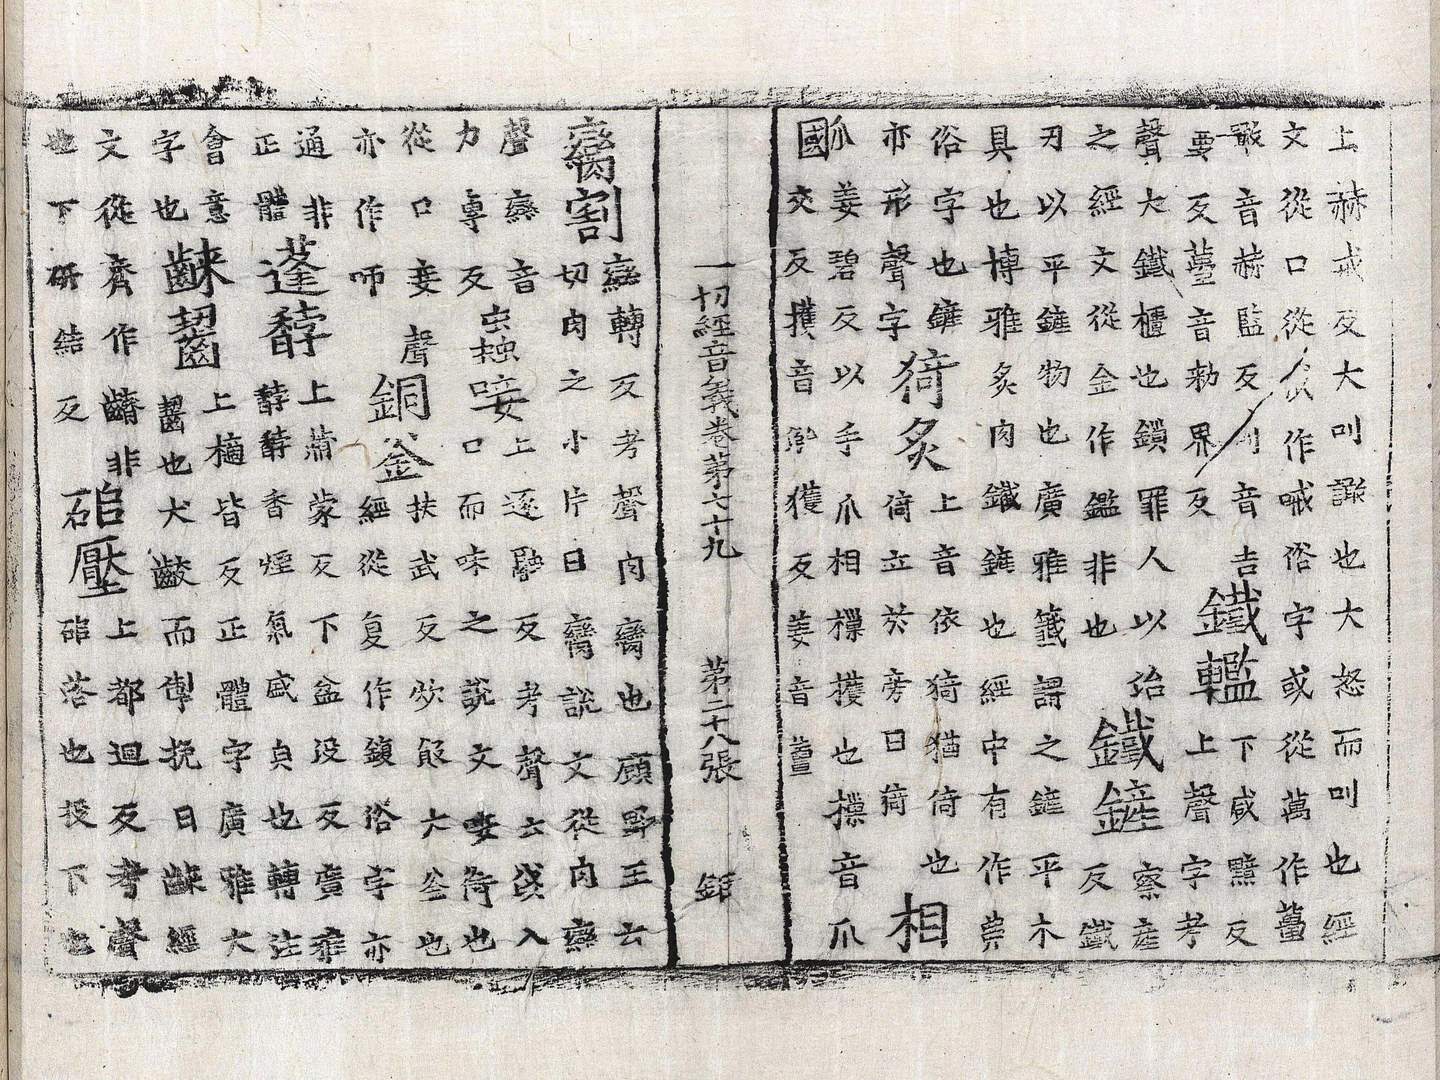 上赫戒反大叫譀也大怒而叫也經
文從口從作喊俗字或從萬作蠆
敢音赫監反音吉
要反蠆音勑界反
鐵轞
下咸黯反
上聲字考
聲大鐵櫃也鎖罪人以治
之經文從金作鑑非也
鐵鏟
察產
反鐵
刃以平鏟物也廣雅籤謂之鏟平木
具也博雅炙肉鐵鏟也經中有作丳
俗字也鏟
亦形聲字
猗炙
上音依猗猶倚也
倚立於旁曰猗
相
爪姜碧反以手爪相攫也攫音爪
國交反攫音獲反姜音薑
一切經音義卷第七十九 第二十八張 鉅
臠割
臠轉反考聲肉臠也顧野王云
切肉之小片曰臠說文從肉䜌
聲䜌音
力專反
虫蝕唼
上逐融反考聲云虫入
口而味之說文唼銜也
從口妾聲
亦作咂
銅釜
扶武反炊飯大釜也
經從复作鍑俗字亦
通非
正體
蓬㶿
上蒲蒙反下盆没反廣雅
㶿㶿香煙氣盛皃也轉注
會意
字也
齜齧
上樀皆反正體字廣雅大
齧也犬齩而掣挽曰齜經
文從齊作齏非
也下研結反
磓壓
上都迴反考聲
磓落也投下也